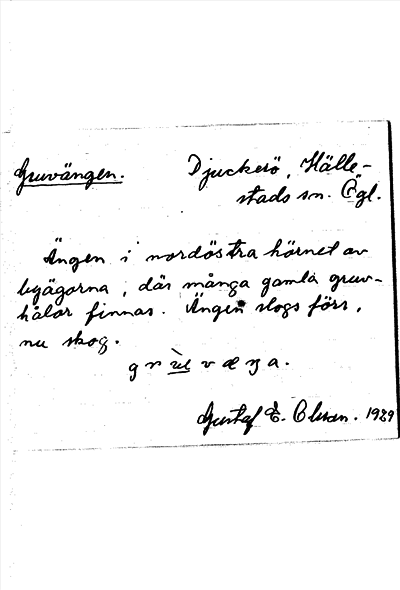 Gruvängen.
Djuckerö, Hälle-
stads sn. Ögl.
Ängen i nordöstra hörnet av
byägorna, där många gamla gruv-
hålor finnas. Ängen slogs förr,
nu skog.
Gustaf E. Olsson. 1929